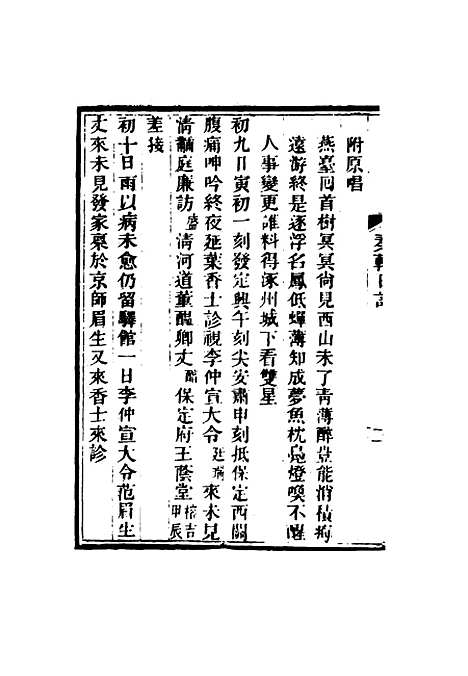 附原唱
燕臺回首樹冥冥尙見西山未了靑薄醉豈能消積痗
遠游終是逐浮名鳳低蟬薄知成夢魚枕凫燈喚不醒
人事變更誰料得涿州城下看雙星
初九日寅初一刻發定興午刻尖安肅申刻抵保定西關
腹痛呻吟終夜延葉香士診視李仲宣大令來未見
淸河道董醞卿丈保定府王蔭堂榕吉甲辰
差接
初十日雨以病未愈仍留驛館一日李仲宣大令范眉生
丈來未見發家稟於京師眉生又來香士來診